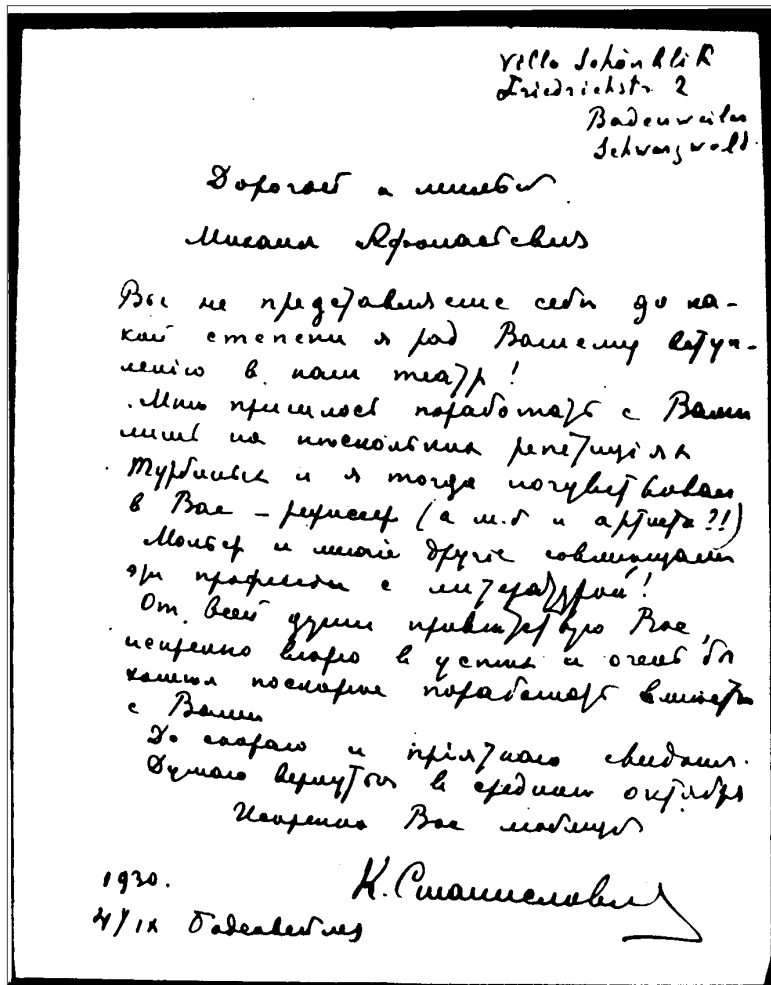 Villa Schönblik
Friedrichstr. 2
Badenweiler
Schwarzwald.
Дорогой и милый
Михаил Афонасьевич
Вы не представляете себѣ до ка-
кой степени я рад Вашему вступ-
лению в наш театр!
Мнѣ пришлось поработать с Вами
лишь на нѣскольких репетициях
Турбиных и я тогда почувствовал
в Вас – режиссер (а м.б и артиста?!)
Мольер и многіе другіе совмѣщали
эти профессии с литературой!
От всей души привѣтствую Вас,
искренно вѣрю в успѣх и очень бы
хотѣл поскорѣе поработать вмѣстѣ
с Вами
До скораго и пріятнаго свиданія.
Думаю вернуться в средине октября
Искренно Вас любящій
К. Станиславский
1930.
4/IX Баденвейлер